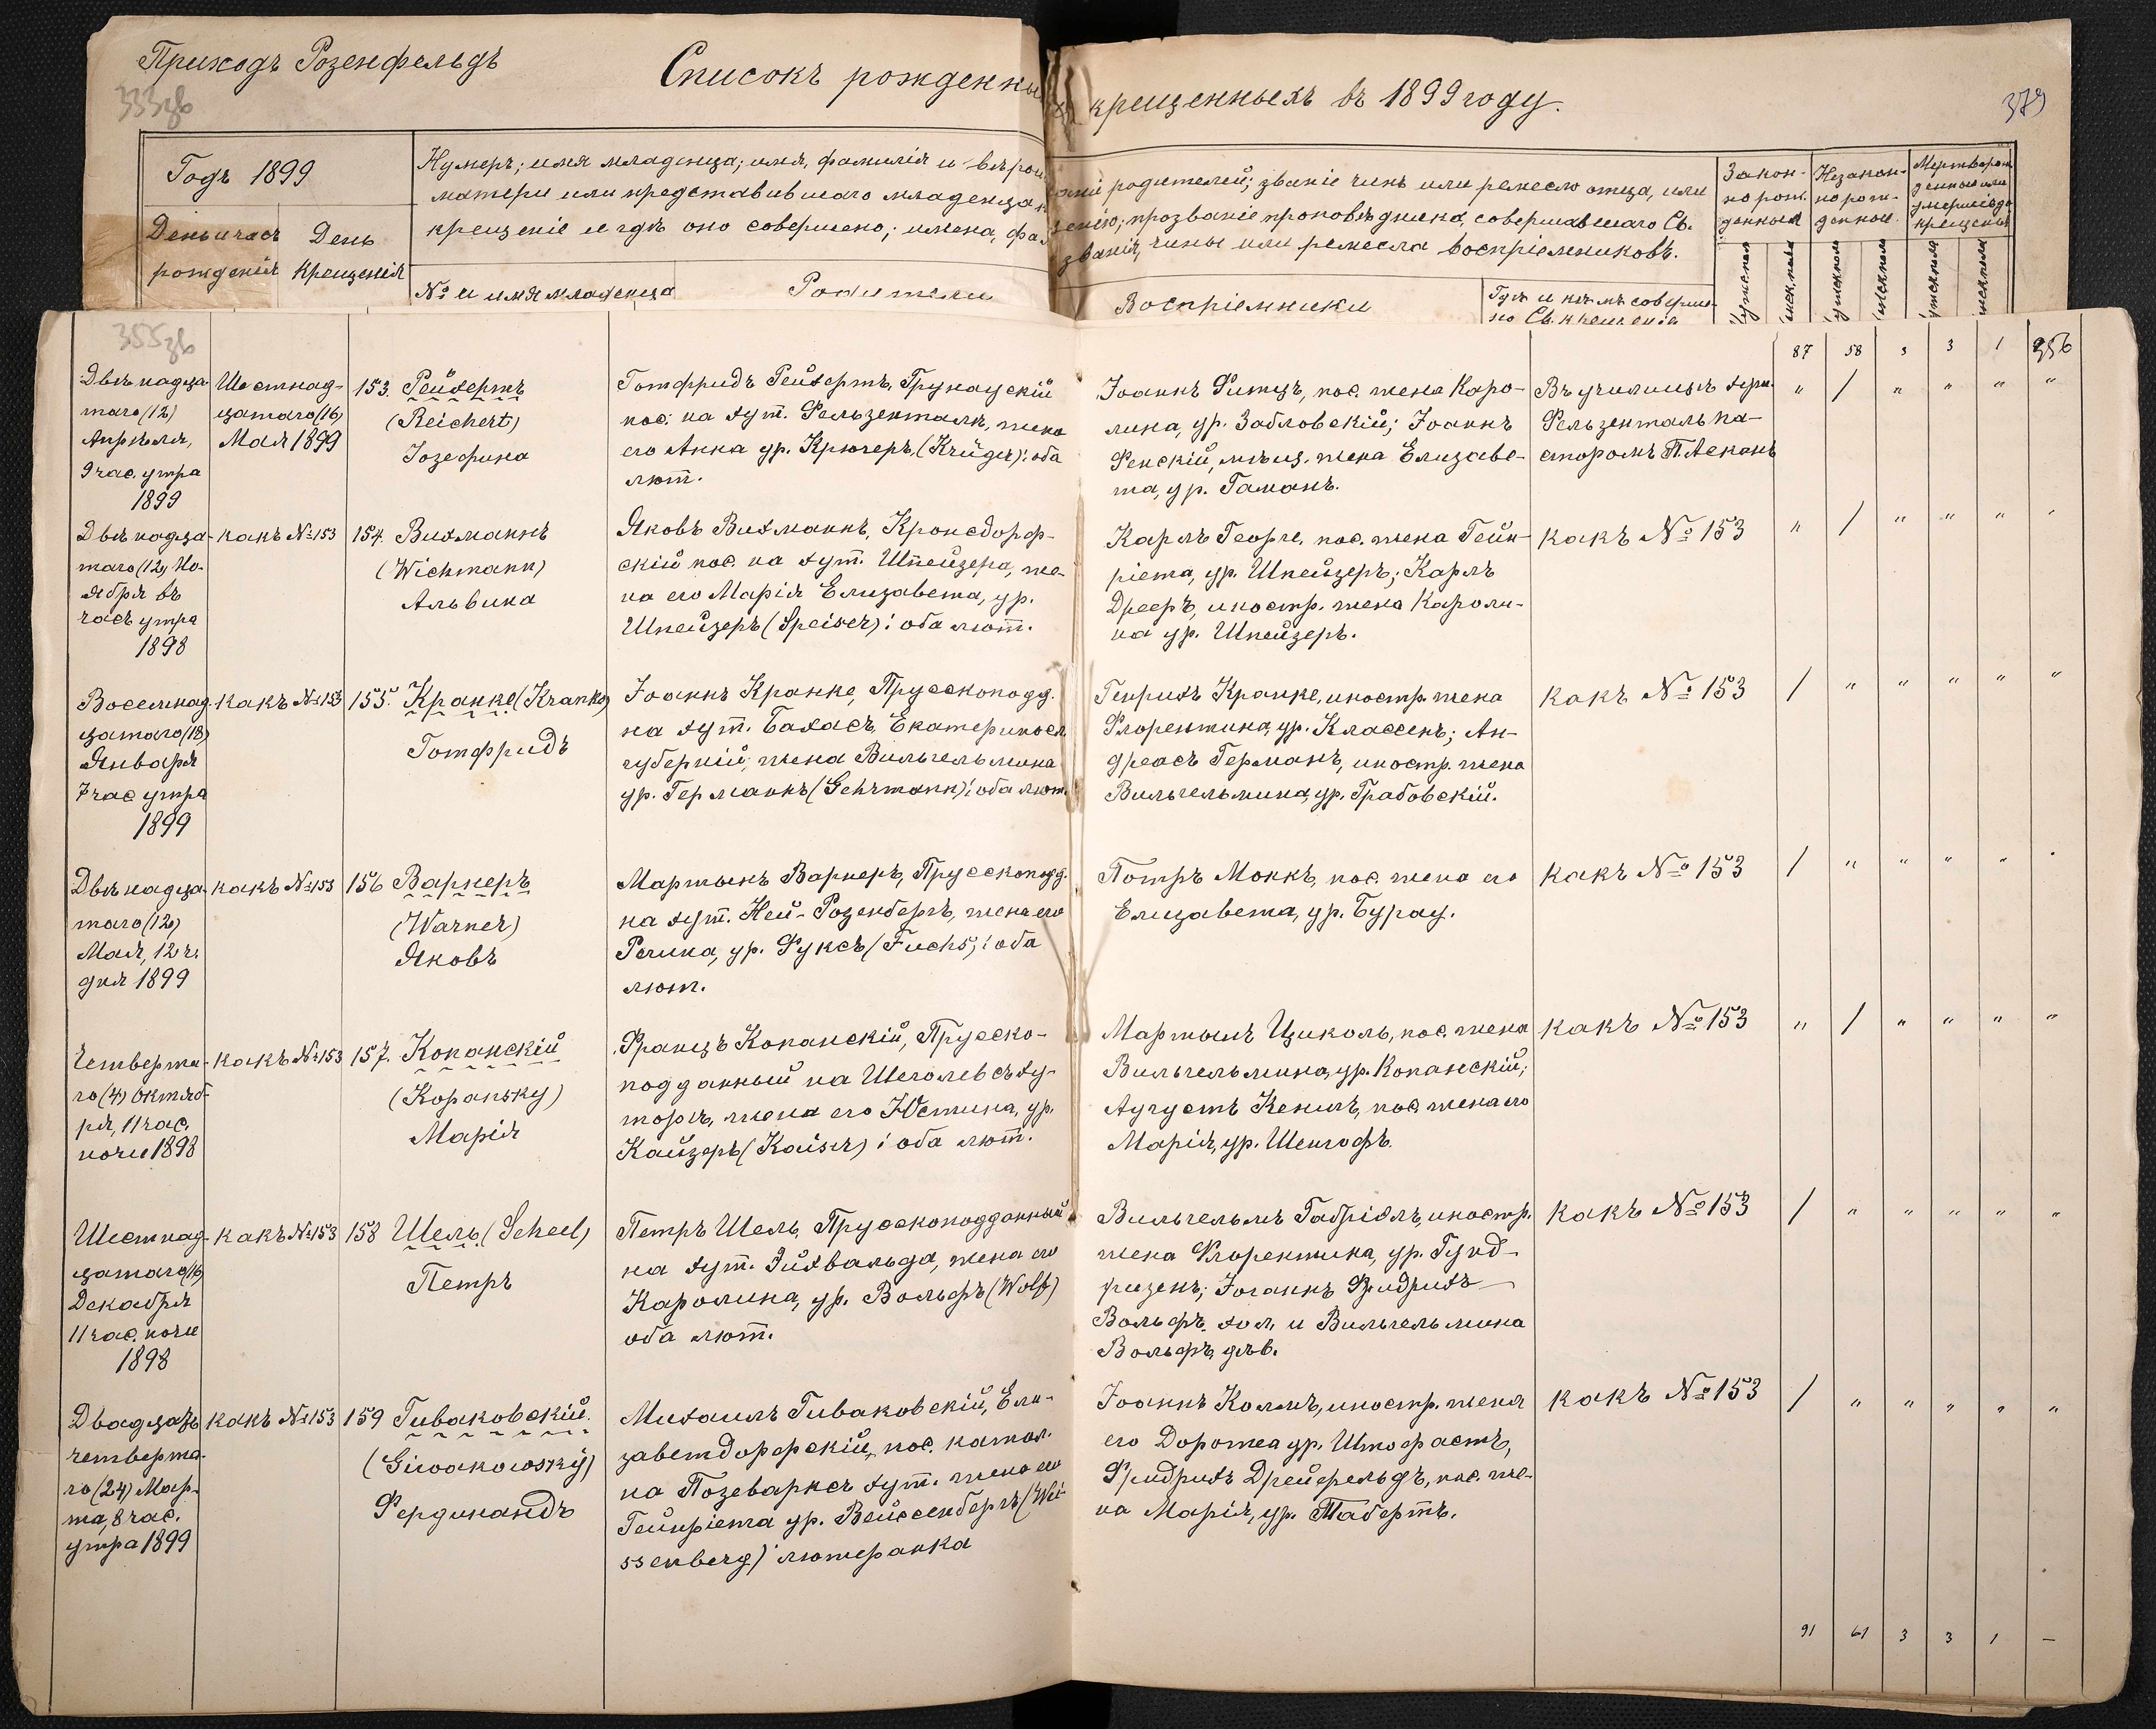 Приходъ Розенфельдъ
Списокъ рожденны
крещенныхъ въ 1899 году.
379
333зв
Годъ 1899
День и часъ рожденія
День крещенія
Нумеръ; имя младенца; имя, фамилія и вѣрои
матери или представившаго младенца к
крещеніе и гдѣ оно совершено; имена, фа
№ и имя младенца
Родители
родителей; званіе чинъ или ремесло отца, или
прозваніе проповѣдника, совершавшаго Св.
званія, чины или ремесла воспріемниковъ.
Воспріемники
Гдѣ и кѣмъ соверше-
но Св. крещеніе
Закон-
но рож-
денные
Незакон-
но рож-
денные
Мертворож
денные или
умершие до
крещенія
355зв
87 58 3 3 1 356
Двѣнадца-
таго (12)
Апрѣля,
9 час. утра
1899
Шестнад-
цатаго (16)
Мая 1899
153. Рейхертъ
(Reichert)
Іозефина
Готфридъ Рейхертъ, Грунаускій
пос. на хут. Фельзенталь, жена
его Анна ур. Крюгеръ, (Krüger); оба
лют.
Іоаннъ Фитцъ, пос. жена Каро-
лина, ур. Забловскій; Іоаннъ
Фенскій, мѣщ. жена Елизаве-
та, ур. Гаманъ.
Въ училищѣ
Фельзенталь па-
сторомъ
" / " " " "
Двѣнадца-
таго (12) Но-
ября въ
часъ утра
1898
какъ №153
154. Вихманнъ
(Wichmann)
Альвина
Яковъ Вихманнъ, Кронсдорф-
скій пос. на хут. Шпейзера, же-
на его Марія Елизавета, ур.
Шпейзеръ (Speiser); оба лют.
Карлъ Георге, пос. жена Генн-
ріета, ур. Шпейзеръ; Карлъ
Дрееръ, иностр. жена Кароли-
на ур. Шпейзеръ.
какъ №153
" / " " " "
Восемнад-
цатаго (18)
Января
7 час утра
1899
какъ №153
155. Кранке (Kranke)
Готфридъ
Іоаннъ Кранке, Прусскоподд.
на хут. Бахасъ, Екатериносл.
губерніи; жена Вильгельмина
ур. Германъ (Gehrmann); оба лют.
Генрихъ Кранке, иностр. жена
Флорентина, ур. Классенъ; Ан-
дреасъ Германъ, иностр. жена
Вильгельмина, ур. Грабовскій.
какъ №153
/ " " " " "
Двѣнадца-
таго (12)
Мая, 12 ч.
дня 1899
какъ №153
156 Варнеръ
(Warner)
Яковъ
Мартынъ Варнеръ, Прусскоподд.
на хут. Ней-Розенбергъ, жена его
Регина, ур. Фуксъ (Fuchs); оба
лют.
Потръ Монкъ, пос. жена его
Елизавета, ур. Бурау.
какъ №153
/ " " " " "
Четверта-
го (4) октяб-
ря, 11 час.
ночи 1898
какъ №153
157. Копанскій
(Kopansky)
Марія
Францъ Копанскій, Прусско-
подданный на Щеголевсъ ху-
торѣ, жена его Юстина, ур.
Кайзеръ (Kaiser); оба лют.
Мартынъ Циколь, пос. жена
Вильгельмина, ур. Копанскій;
Августъ Кенигъ, пос. жена его
Марія, ур. Шенгофъ.
какъ №153
" / " " " "
Шестнад-
цатаго (16)
Декабря
11 час. ночи
1898
какъ №153
158 Шель (Scheel)
Петръ
Петръ Шель, Прусскоподданный
на хут. Эйхвальда, жена его
Каролина, ур. Вольфъ (Wolf)
оба лют.
Вильгельмъ Габріэль, иностр.
жена Флорентина, ур. Гунд-
ризенъ; Іоганнъ Фридрихъ
Вольфъ, хол. и Вильгельмина
Вольфъ, дѣв.
какъ №153
/ " " " " "
Двадцать
четверта-
го (24) Мар-
та, 8 час.
утра 1899
какъ №153
159 Гиваковскій.
(Giwakowsky)
Фердинандъ
Михаилъ Гиваковскій, Ели-
заветдорфскій, пос. катол.
на Позеваркеъ хут. жена его
Генріета ур. Вейссенбергъ (Wei-
ssenberg) лютеранка
Іоаннъ Коллнъ, иностр. жена
его Доротеа ур. Штофастъ,
Фридрихъ Дрейфельдъ, пос. же-
на Марія, ур. Табертъ.
какъ №153
/ " " " " "
91 61 3 3 1 —